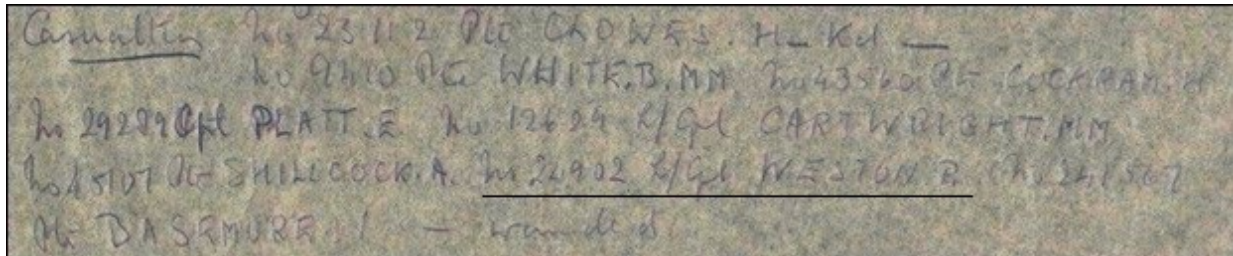 Casualties No 23112 Pte CLOWES. H – Kd —
No 9210 Pte WHITE.B.MM. No 43560 Pte COCKRAM.H
No 29289 Cpl PLATT.E No 12629 L/Cpl CARTWRIGHT.MM
No 15107 Pte SHILLCOCK.A. No 24902 L/Cpl WESTON B. No 241567
Pte — wounded